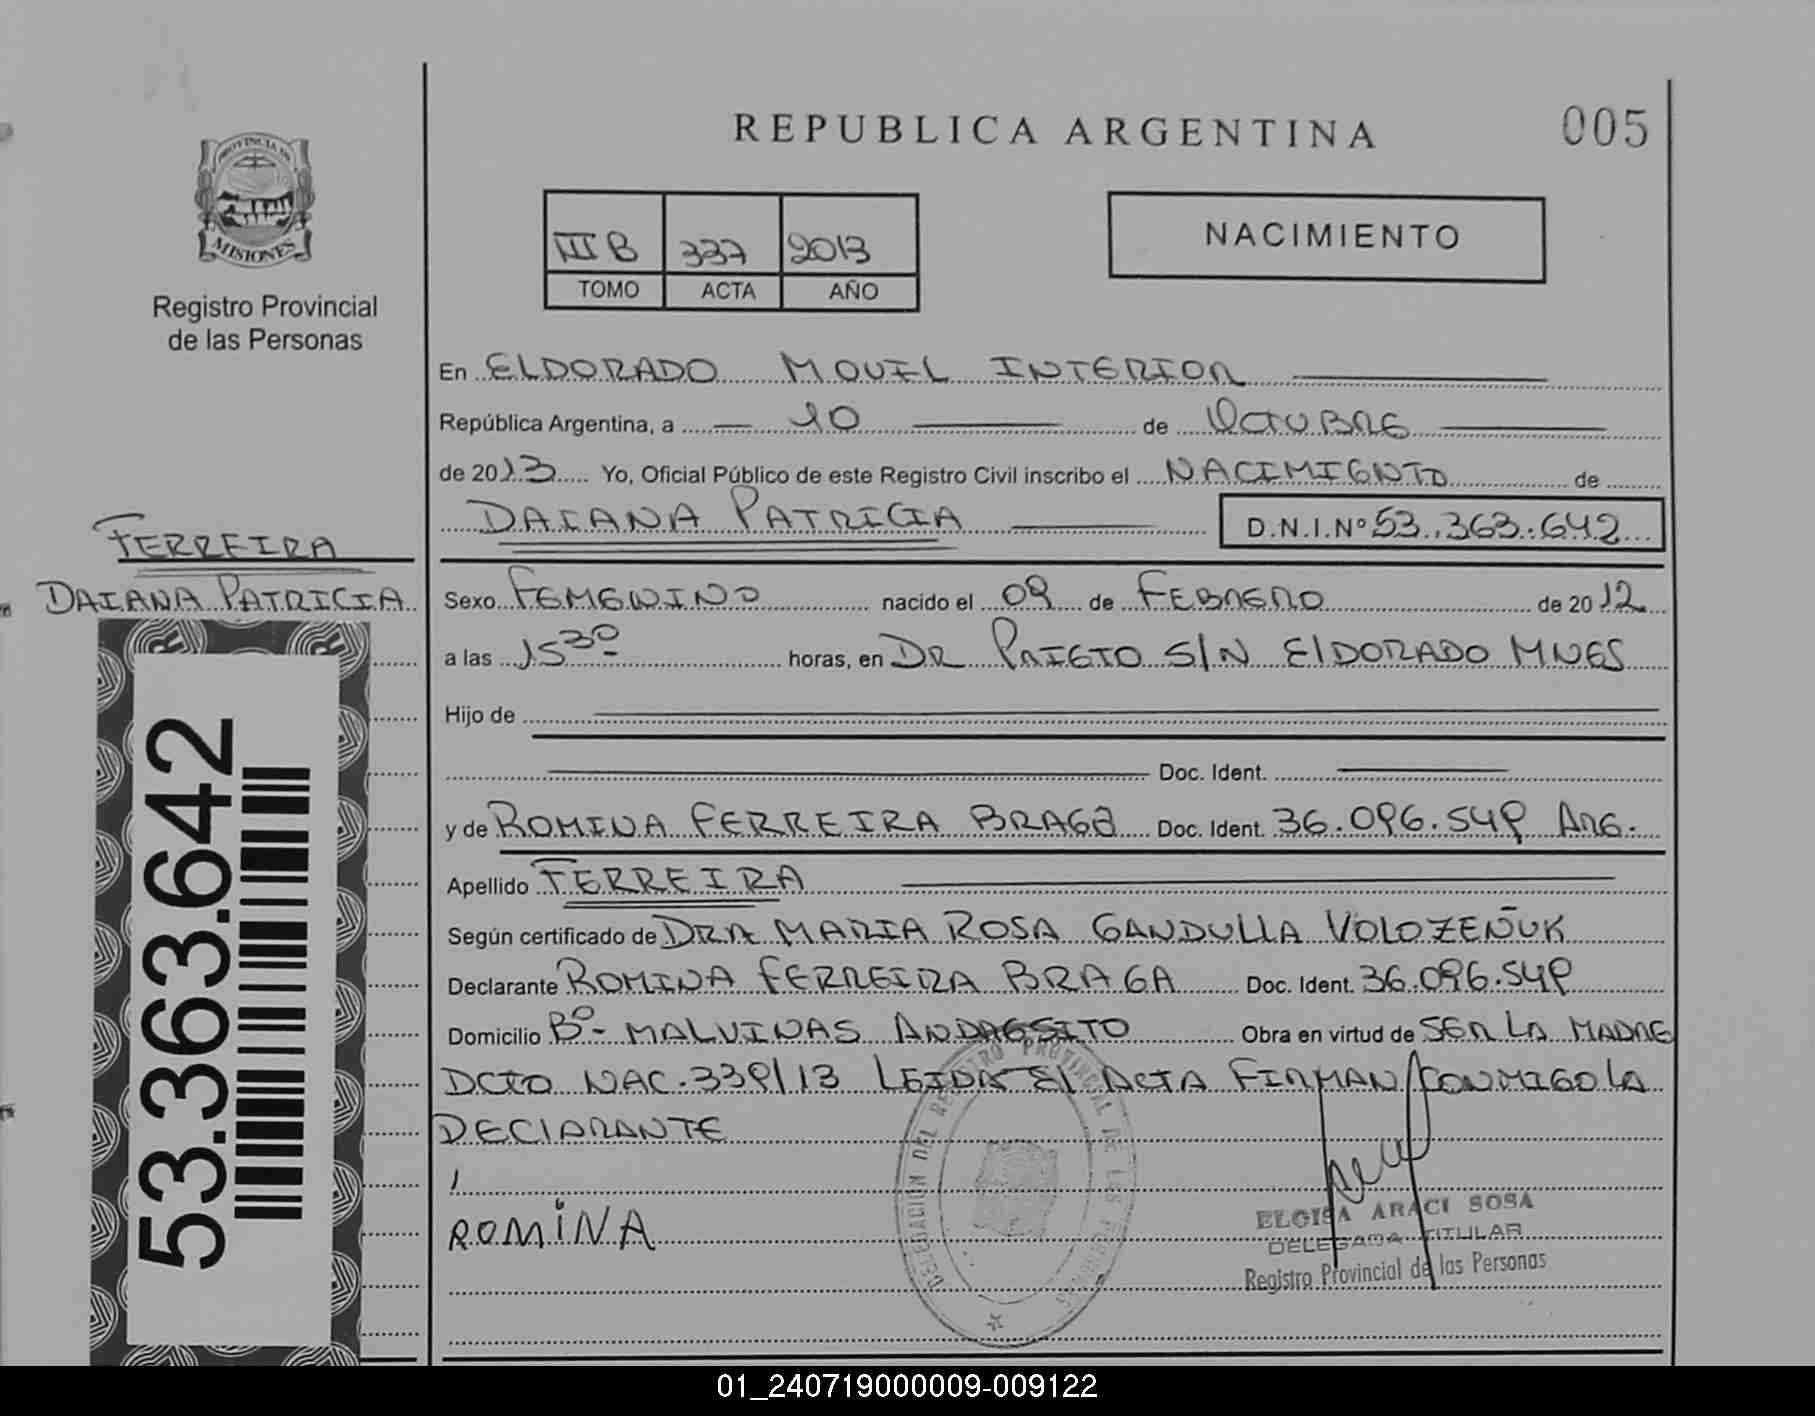 REPUBLICA ARGENTINA
005
PROVINCIA DE
MISIONES
Registro Provincial
de las Personas
III B 337 2013
TOMO ACTA AÑO
NACIMIENTO
En ELDORADO MOVIL INTERIOR
República Argentina, a 10 de OCTUBRE
de 2013 Yo, Oficial Público de este Registro Civil inscribo el NACIMIENTO de
DAIANA PATRICIA D.N.I.Nº 53.363.642
FERREIRA
DAIANA PATRICIA
Sexo FEMENINO nacido el 09 de FEBRERO de 2012
a las 15 30 horas, en DR PRIETO S/N ElDORADO MNES
Hijo de
Doc. Ident.
y de ROMINA FERREIRA BRAGA Doc. Ident. 36.096.549 ARG.
Apellido FERREIRA
Según certificado de DRA MARIA ROSA GANDULLA VOLOZEÑUK
Declarante ROMINA FERREIRA BRAGA Doc. Ident. 36.096.549
Domicilio Bº- MALVINAS ANDRESITO Obra en virtud de SER LA MADRE
DCTO NAC. 339/13 LEIDA El ACTA FIRMAN CONMIGO LA
DEClARANTE
ROMiNA
53.363.642
DELEGACION DEL REGISTRO PROVINCIAL DE LAS PERSONAS
ELOISA ARACI SOSA
DELEGADA TITULAR
Registro Provincial de las Personas
01_240719000009-009122